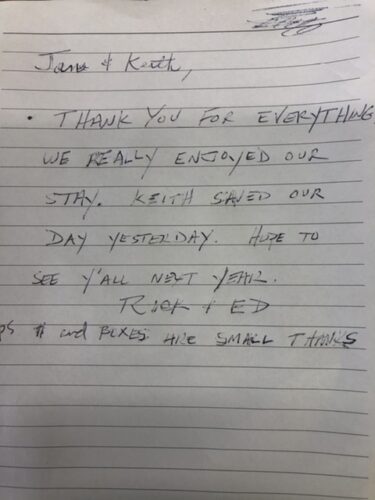 Jane & Keith,
• THANK YOU FOR EVERYTHING
WE REALLY ENJOYED OUR
STAY. KEITH SAVED OUR
DAY YESTERDAY. HOPE TO
SEE Y'ALL NEXT YEAR.
RICK & ED
PS # and BOXES ARE SMALL THANKS